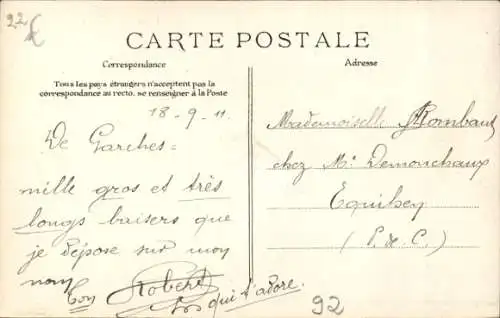 22
CARTE POSTALE
Correspondance
Adresse
Tous les pays étrangers n'acceptent pas la
correspondance au recto. se renseigner à la Poste
18-9-11
De Garches =
mille gros et très
longs baisers que
je dépose sur mon
nom
Ton Robert
qui t'adore.
Mademoiselle Rombaut
chez Mr Demonchaux
Equihen
(P. de C.)
92